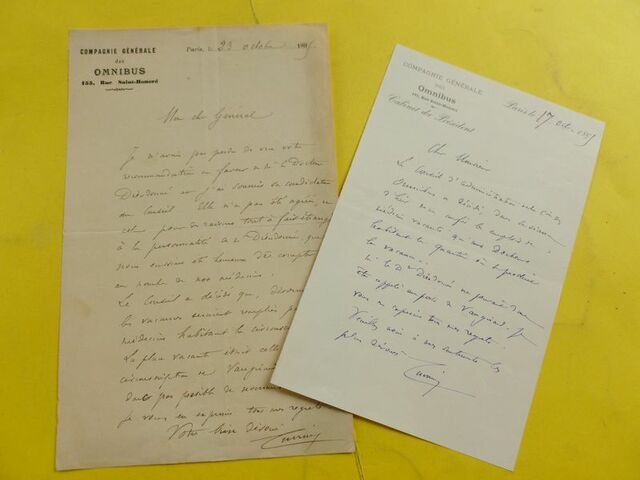 COMPAGNIE GÉNÉRALE
des
OMNIBUS
155, Rue Saint-Honoré
Paris, le 23 octobre 189
Mon cher Général
Je n'avais pas perdu de vue votre
recommandation en faveur de M. le Docteur
Dieudonné et j'ai soumis sa candidature
au Conseil. Elle n'a pas été agréée,
cela pour des raisons tout à fait étrangères
à la personnalité de M. Dieudonné, que
nous eussions été heureux de compter
au nombre de nos médecins.
Le Conseil a décidé que, désormais
les vacances seraient remplies par
médecins habitant la circonscription
La place vacante était celle
circonscription de Vaugirard
donc pas possible de nommer
Je vous en exprime tous mes regrets
Votre bien dévoué
COMPAGNIE GÉNÉRALE
DES
Omnibus
155, Rue Saint-Honoré
Cabinet du Président
Paris le 17 Oct. 189
Cher Monsieur
Le Conseil d'administration de la Cie des
Omnibus a décidé, dans sa séance
médecin vacante qu'aux Docteurs
habitant le quartier où se produit
la vacance.
M. le Dr Dieudonné ne pourra donc
être appelé au poste de Vaugirard. Je
vous en exprime tous mes regrets.
Veuillez
plus dévoués